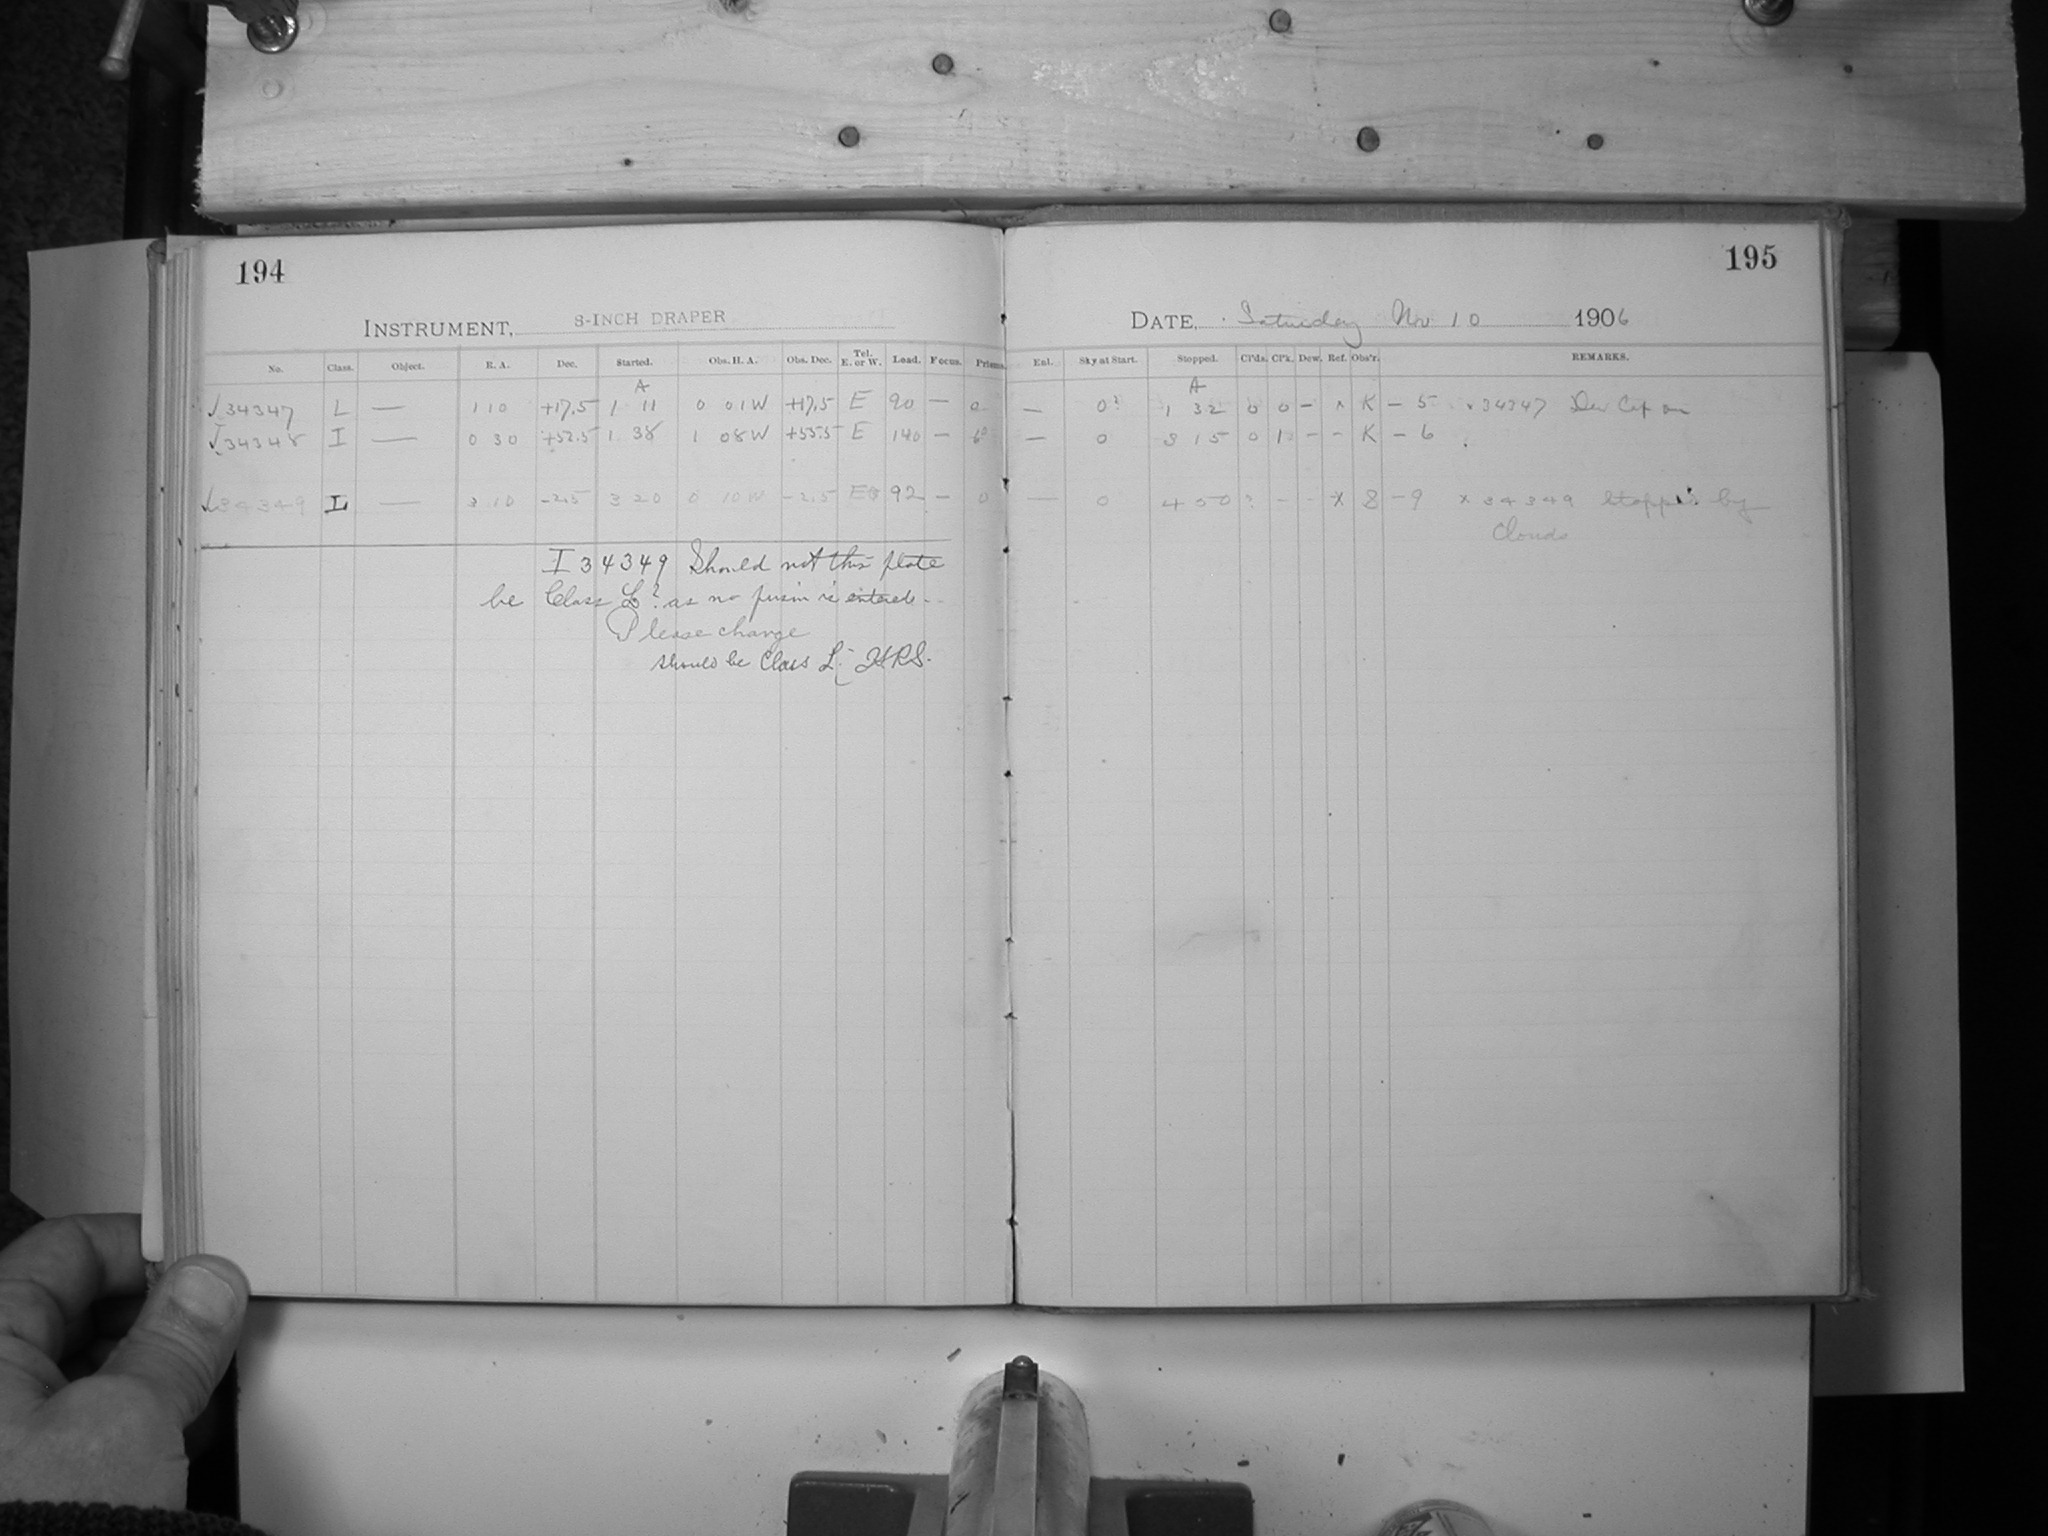 194
INSTRUMENT, 8-INCH DRAPER
No. Class. Object. R. A. Dec. Started. Obs. H. A. Obs. Dec. Tel. E. or W. Load. Focus. Prisms.
A
√34347 L — 1 10 +17.5 1 11 0 01W +17.5 E 90 — 0
√34348 I — 0 30 +52.5 1 38 1 08W +53.5 E 140 —
√34349 L — 3 10 -2.5 3 20 0 10W -2.5 E 92 — 0
I 34349 Should not this plate
be Class L? as no prism is entered.
Please change
should be Class L.
195
DATE, Saturday Nov 10 1906
Enl. Sky at Start. Stopped. Cl'ds. Cl'k. Dew. Ref. Obs'r. REMARKS.
A
— 0? 1 32 0 0 - x K - 5 x34347 Dew Cap on
— 0 3 15 0 1 - - K - 6
— 0 4 00 ? - - x 8 - 9 x 34349 Stopped by
Clouds